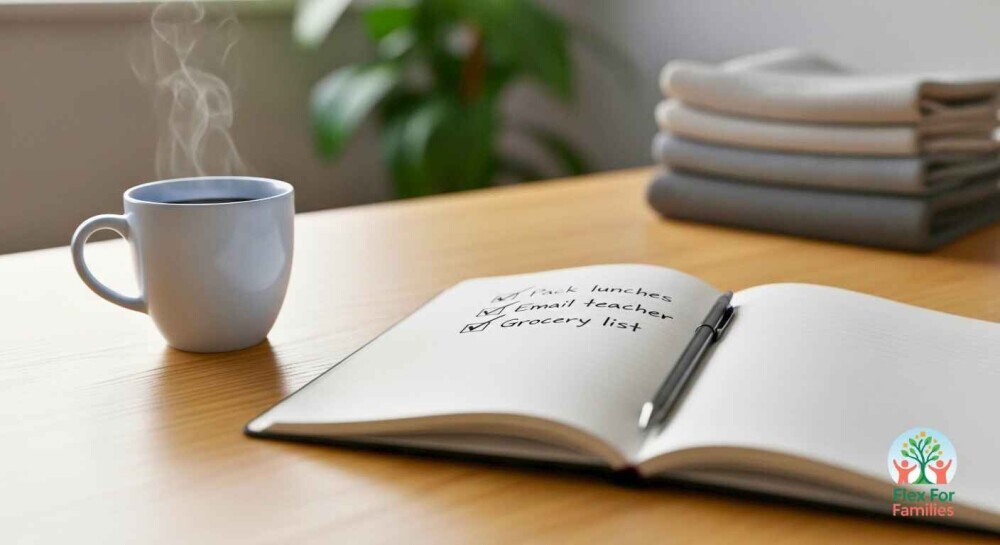 Pack lunches
Email teacher
Grocery list
Flex For
Families